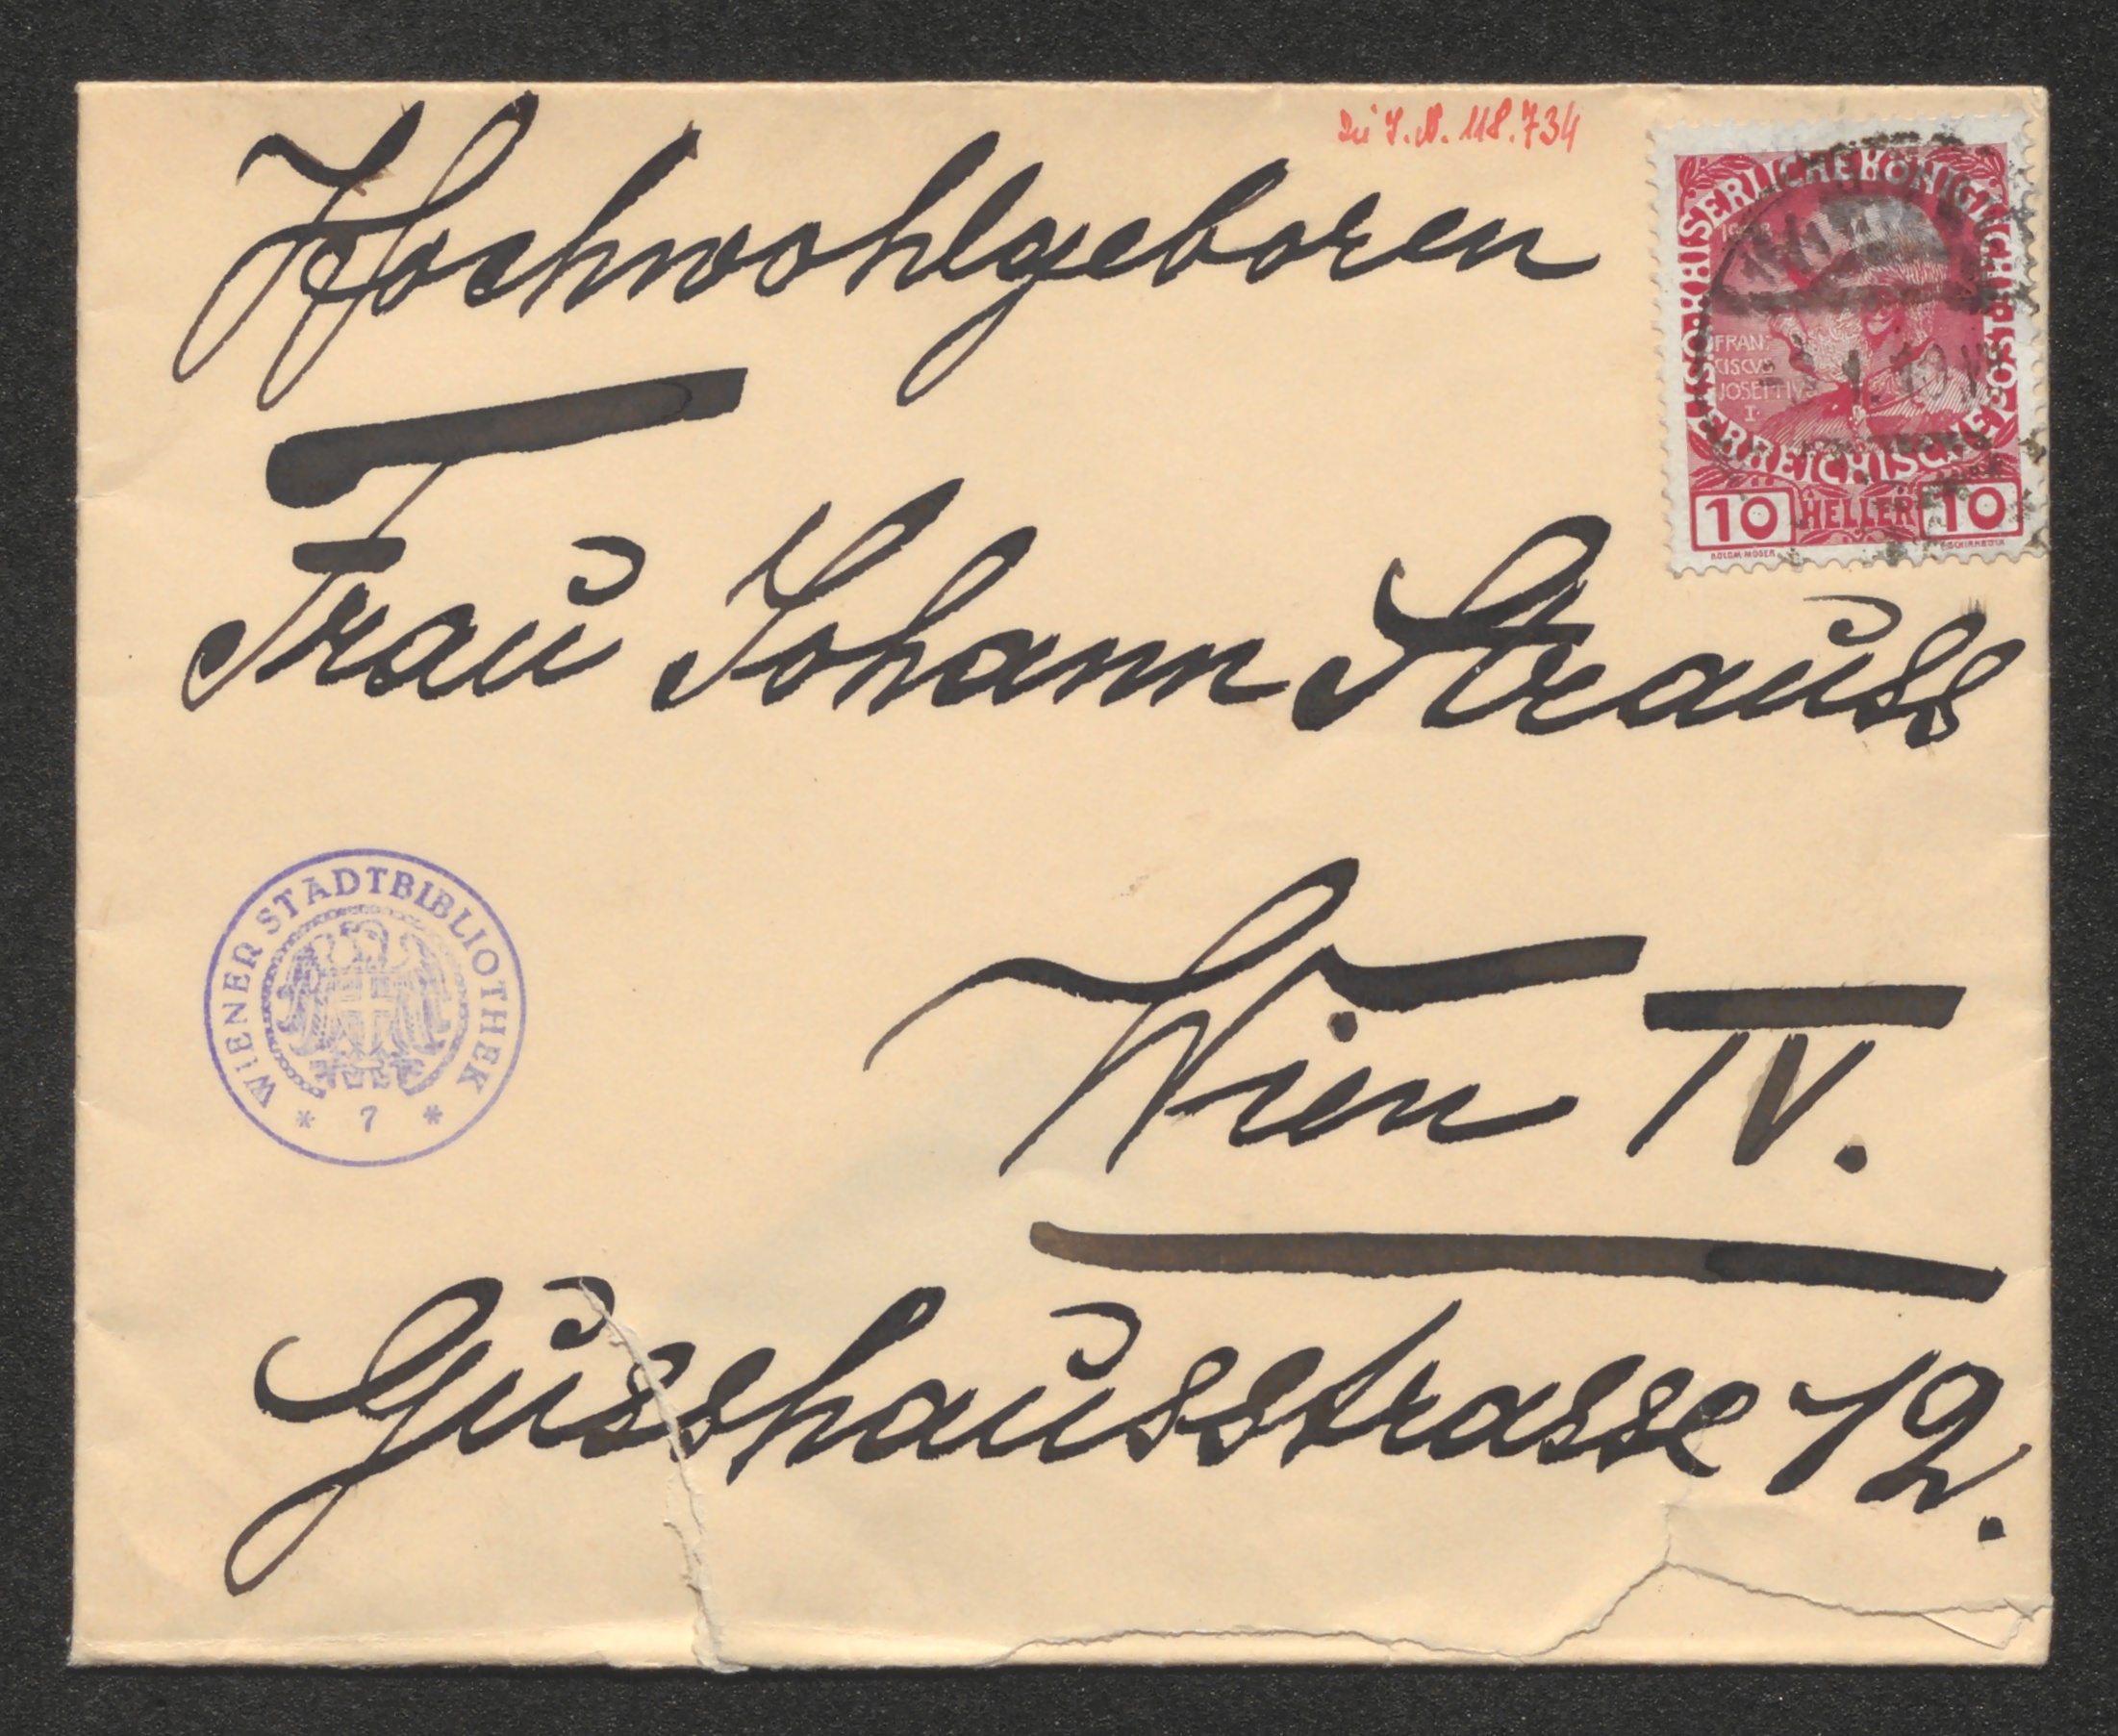 zu I.N. 118.734
Hochwohlgeboren
Frau Johann Strauss
Wien IV.
Gusshausstrasse 12.
WIENER STADTBIBLIOTHEK
* 7 *
KAISERLICHE KÖNIGLICHE ÖSTERREICHISCHE POST
FRAN
CISCVS
JOSEPHVS
I.
10 HELLER 10
KOLOM. MOSER
F. SCHIRNBÖCK